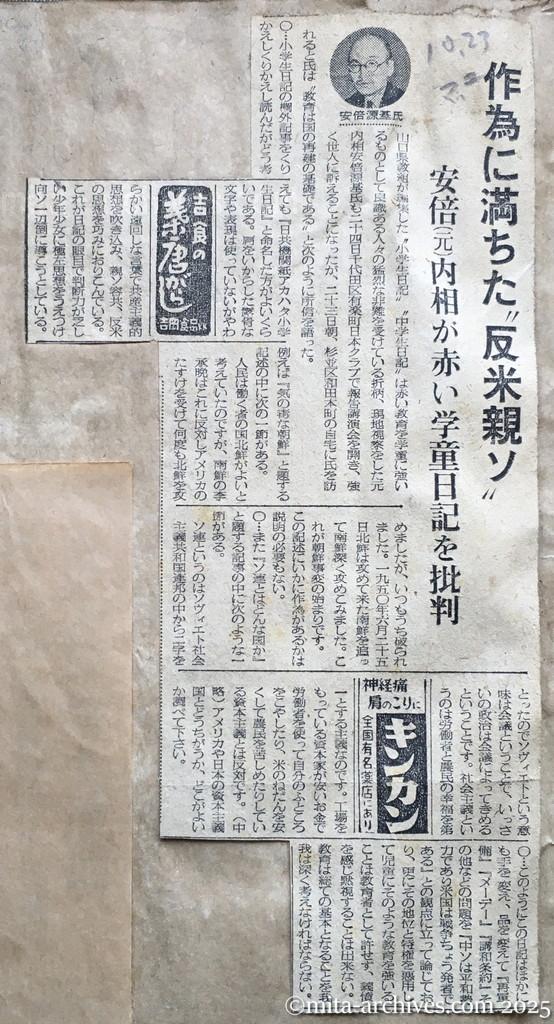 10.23
作為に満ちた〝反米親ソ〟
安倍(元)内相が赤い学童日記を批判
安倍源基氏
山口県教組が編集した〝小学生日記〟〝中学生日記〟は赤い教育を学童に強い
るものとして良識ある人々の猛烈な非難を受けている折柄、現地視察をした元
内相安倍源基氏も二十四日千代田区有楽町日本クラブで報告講演会を開き、強
く世人に訴えることになったが、二十三日朝、杉並区和田本町の自宅に氏を訪
れると氏は〝教育は国の再建の基礎である〟と次のように所信を語った。
〇…小学生日記の欄外記事をくり
かえしくりかえし読んだがどう考
えても『日共機関紙アカハタ小学
生日記』と命名した方がよいくら
いである。肩をいからした激得な
文字や表現は使っていないがやわ
らかい遠回しな言葉で共産主義的
思想を吹き込み、親ソ容共、反米
の思想を巧みにおりこんでいる。
これが日記の眼目で判断力が乏し
い少年少女に極左思想をうえつけ
向ソ一辺倒に導こうとしている。
吉食の
義唐がらし
吉岡食品KK
例えば『気の毒な朝鮮』と題する
記述の中に次の一節がある。
人民は働く者の国北鮮がよいと
考えていたのですが、南鮮の李
承晩はこれに反対しアメリカの
たすけを受けて何度も北鮮を攻
めましたが、いつもうち破られ
ました。一九五〇年六月二十五
日北鮮は攻めて来た南鮮を追っ
て南鮮深く攻めこみました。こ
れが朝鮮事変の始まりです。
この記述にいかに作為があるかは
説明の必要もない。
〇…また『ソ連とはどんな国か』
と題する記事の中に次のような一
節がある。
ソ連というのはソヴィエト社会
主義共和国連邦の中から二字を
とったのでソヴィエトという意
味は会議ということで、いっさ
いの政治は会議によってきめる
ということです。社会主義とい
うのは労働者と農民の幸福を第
一とする主義なのです。工場を
もっている資本家が安いお金で
労働者を使って自分のふところ
をこやしたり、米のねだんを安
くして農民を苦しめたりしてい
る資本主義とは反対です。(中
略)アメリカや日本の資本主義
国とどうちがうか、どこがよい
か調べて下さい。
神経痛
肩のこりに
キンカン
全国有名薬店にあり
〇…このようにこの日記はほかに
も手を変え、品を変えて『再軍
備』『メーデー』『講和条約』そ
の他などの問題を『中ソは平和勢
力であり米国は戦争ちょう発者で
ある』との観点に立って論じてお
り、更にその地位と特権を悪用し
て児童にそのような教育を強いる
ことは教育者として許せず、義憤
を感じ黙視することは出来ない。
教育は総ての基本となることを我
我は深く考えなければならない。
©mita-archives.com 2025